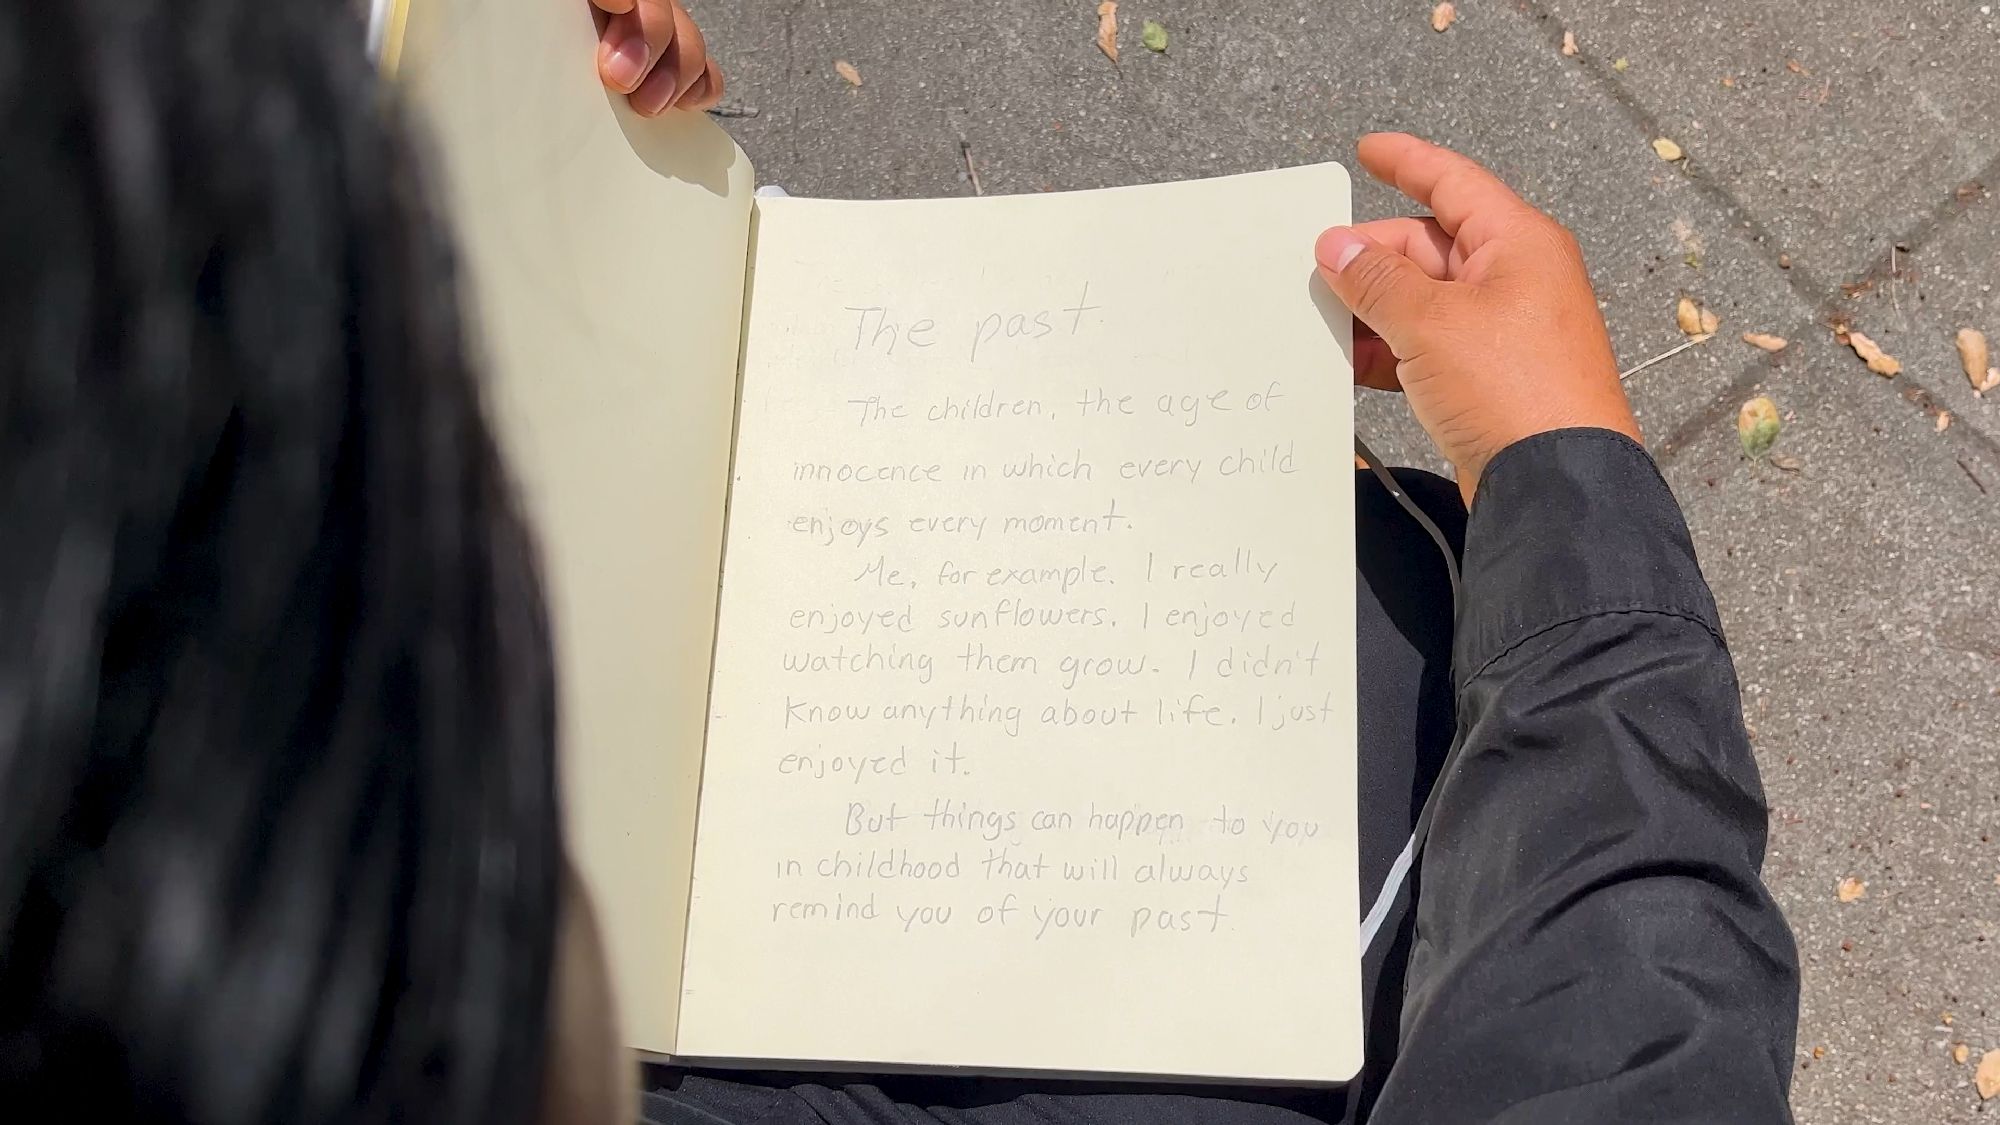 The past.
The children, the age of
innocence in which every child
enjoys every moment.
Me, for example. I really
enjoyed sunflowers. I enjoyed
watching them grow. I didn't
know anything about life. I just
enjoyed it.
But things can happen to you
in childhood that will always
remind you of your past.